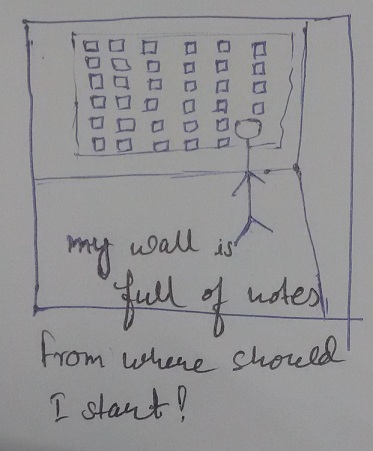 my wall is
full of notes
from where should
I start!